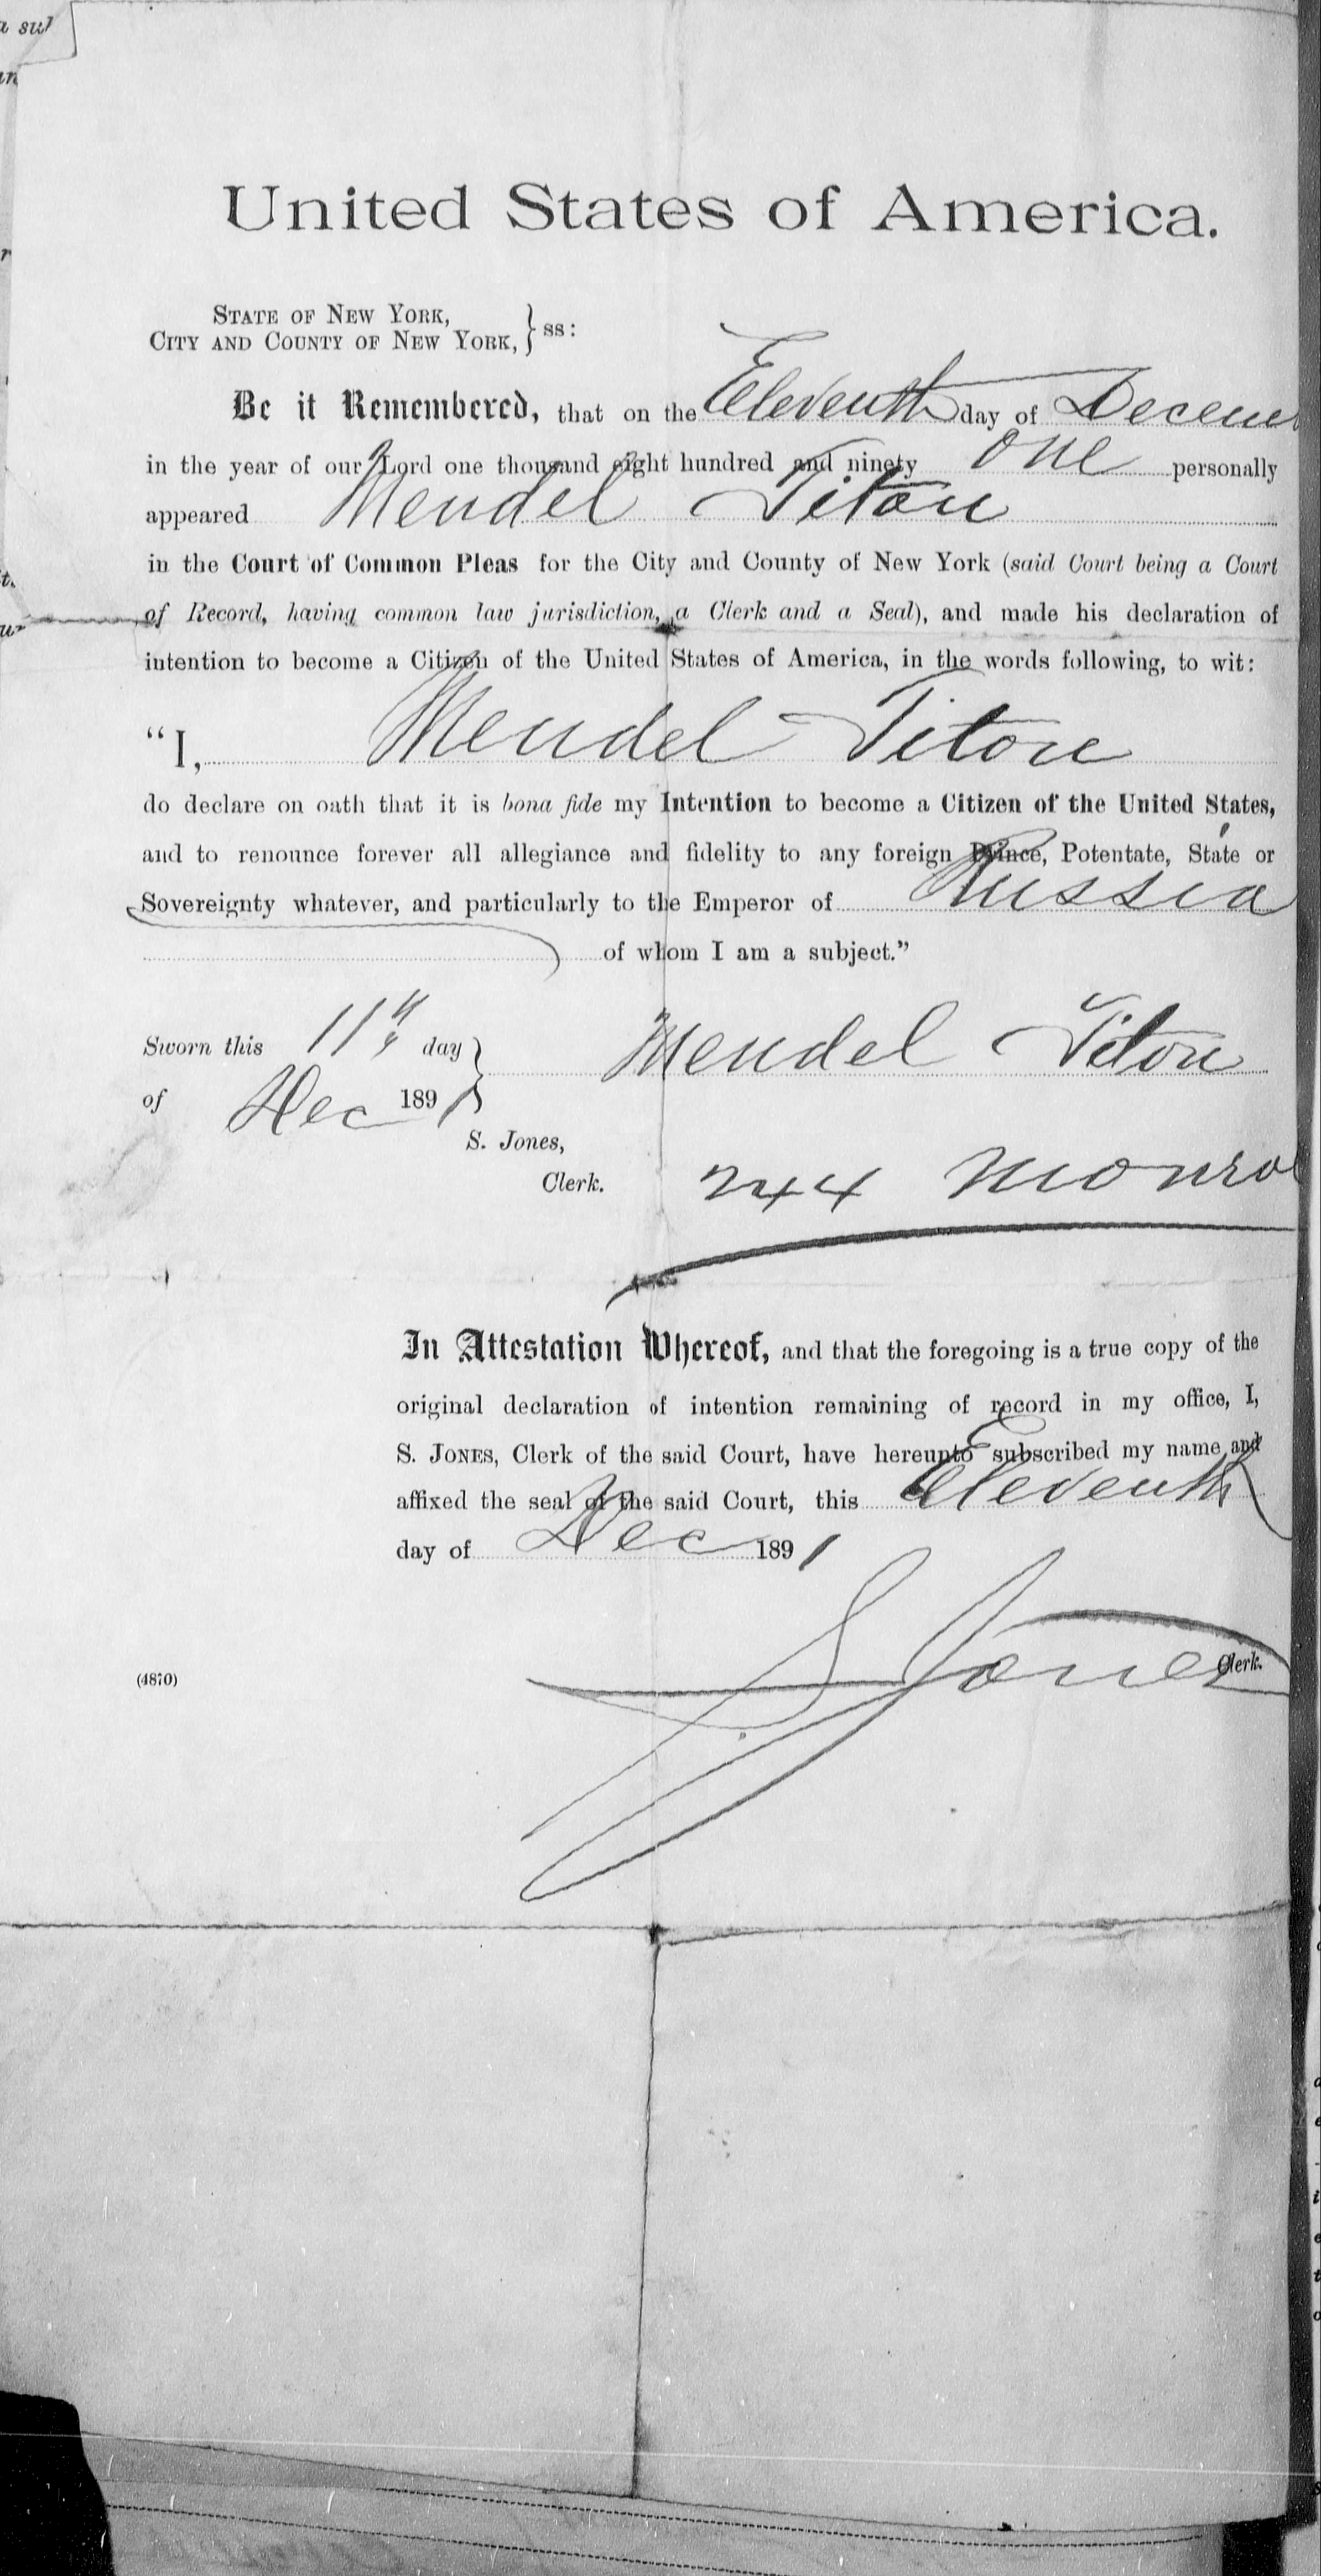 United States of America.
STATE OF NEW YORK,
CITY AND COUNTY OF NEW YORK, } ss:
Be it Remembered, that on the Eleventh day of Decem
in the year of our Lord one thousand eight hundred and ninety one personally
appeared Mendel Titon
in the Court of Common Pleas for the City and County of New York (said Court being a Court
of Record, having common law jurisdiction, a Clerk and a Seal), and made his declaration of
intention to become a Citizen of the United States of America, in the words following, to wit:
"I, Mendel Titon
do declare on oath that it is bona fide my Intention to become a Citizen of the United States,
and to renounce forever all allegiance and fidelity to any foreign Prince, Potentate, State or
Sovereignty whatever, and particularly to the Emperor of Russia
of whom I am a subject."
Sworn this 11th day } Mendel Titon
of Dec 1891
S. Jones,
Clerk. 244 Monroe
In Attestation Whereof, and that the foregoing is a true copy of the
original declaration of intention remaining of record in my office, I,
S. JONES, Clerk of the said Court, have hereunto subscribed my name and
affixed the seal of the said Court, this Eleventh
day of Dec 1891
S Jones Clerk.
(4870)